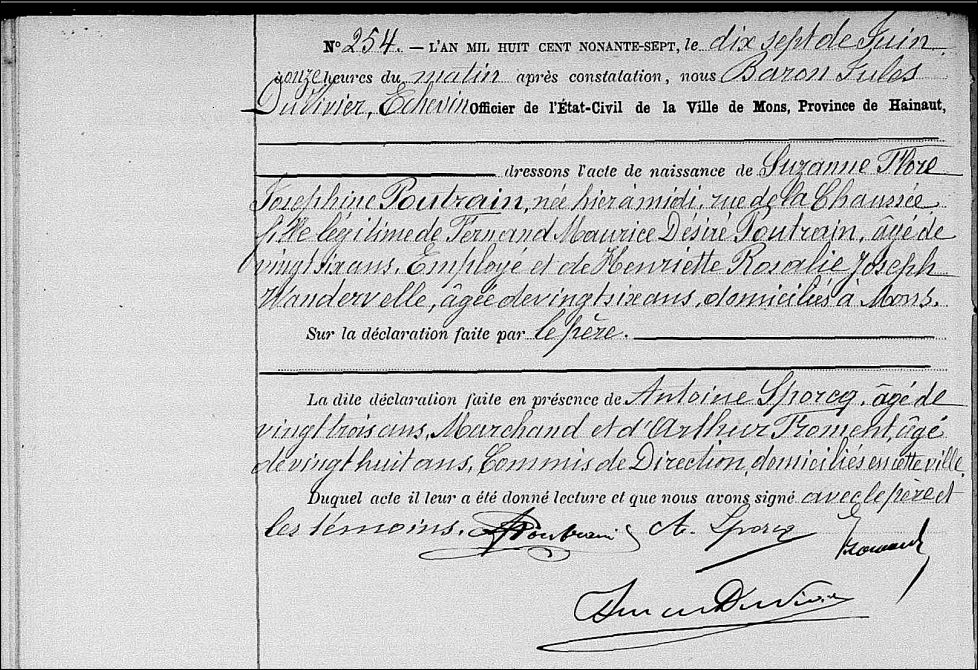 N° 254. — L'AN MIL HUIT CENT NONANTE-SEPT, le dix sept de Juin
onze heures du matin après constatation, nous Baron Jules
Duvivier, Echevin Officier de l'État-Civil de la Ville de Mons, Province de Hainaut,
dressons l'acte de naissance de Suzanne Flore
Joséphine Poutrain, née hier à midi, rue de la Chaussée
fille légitime de Fernand Maurice Désiré Poutrain, âgé de
vingt six ans, Employé et de Henriette Rosalie Joseph
Wandervelle, âgée de vingt six ans, domiciliés à Mons.
Sur la déclaration faite par le père.
La dite déclaration faite en présence de Antoine Sporcq, âgé de
vingt trois ans, Marchand et d'Arthur Froment, âgé
de vingt huit ans, Commis de Direction, domiciliés en cette ville.
Duquel acte il leur a été donné lecture et que nous avons signé avec le père et
les témoins. Poutrain A. Sporcq Froment